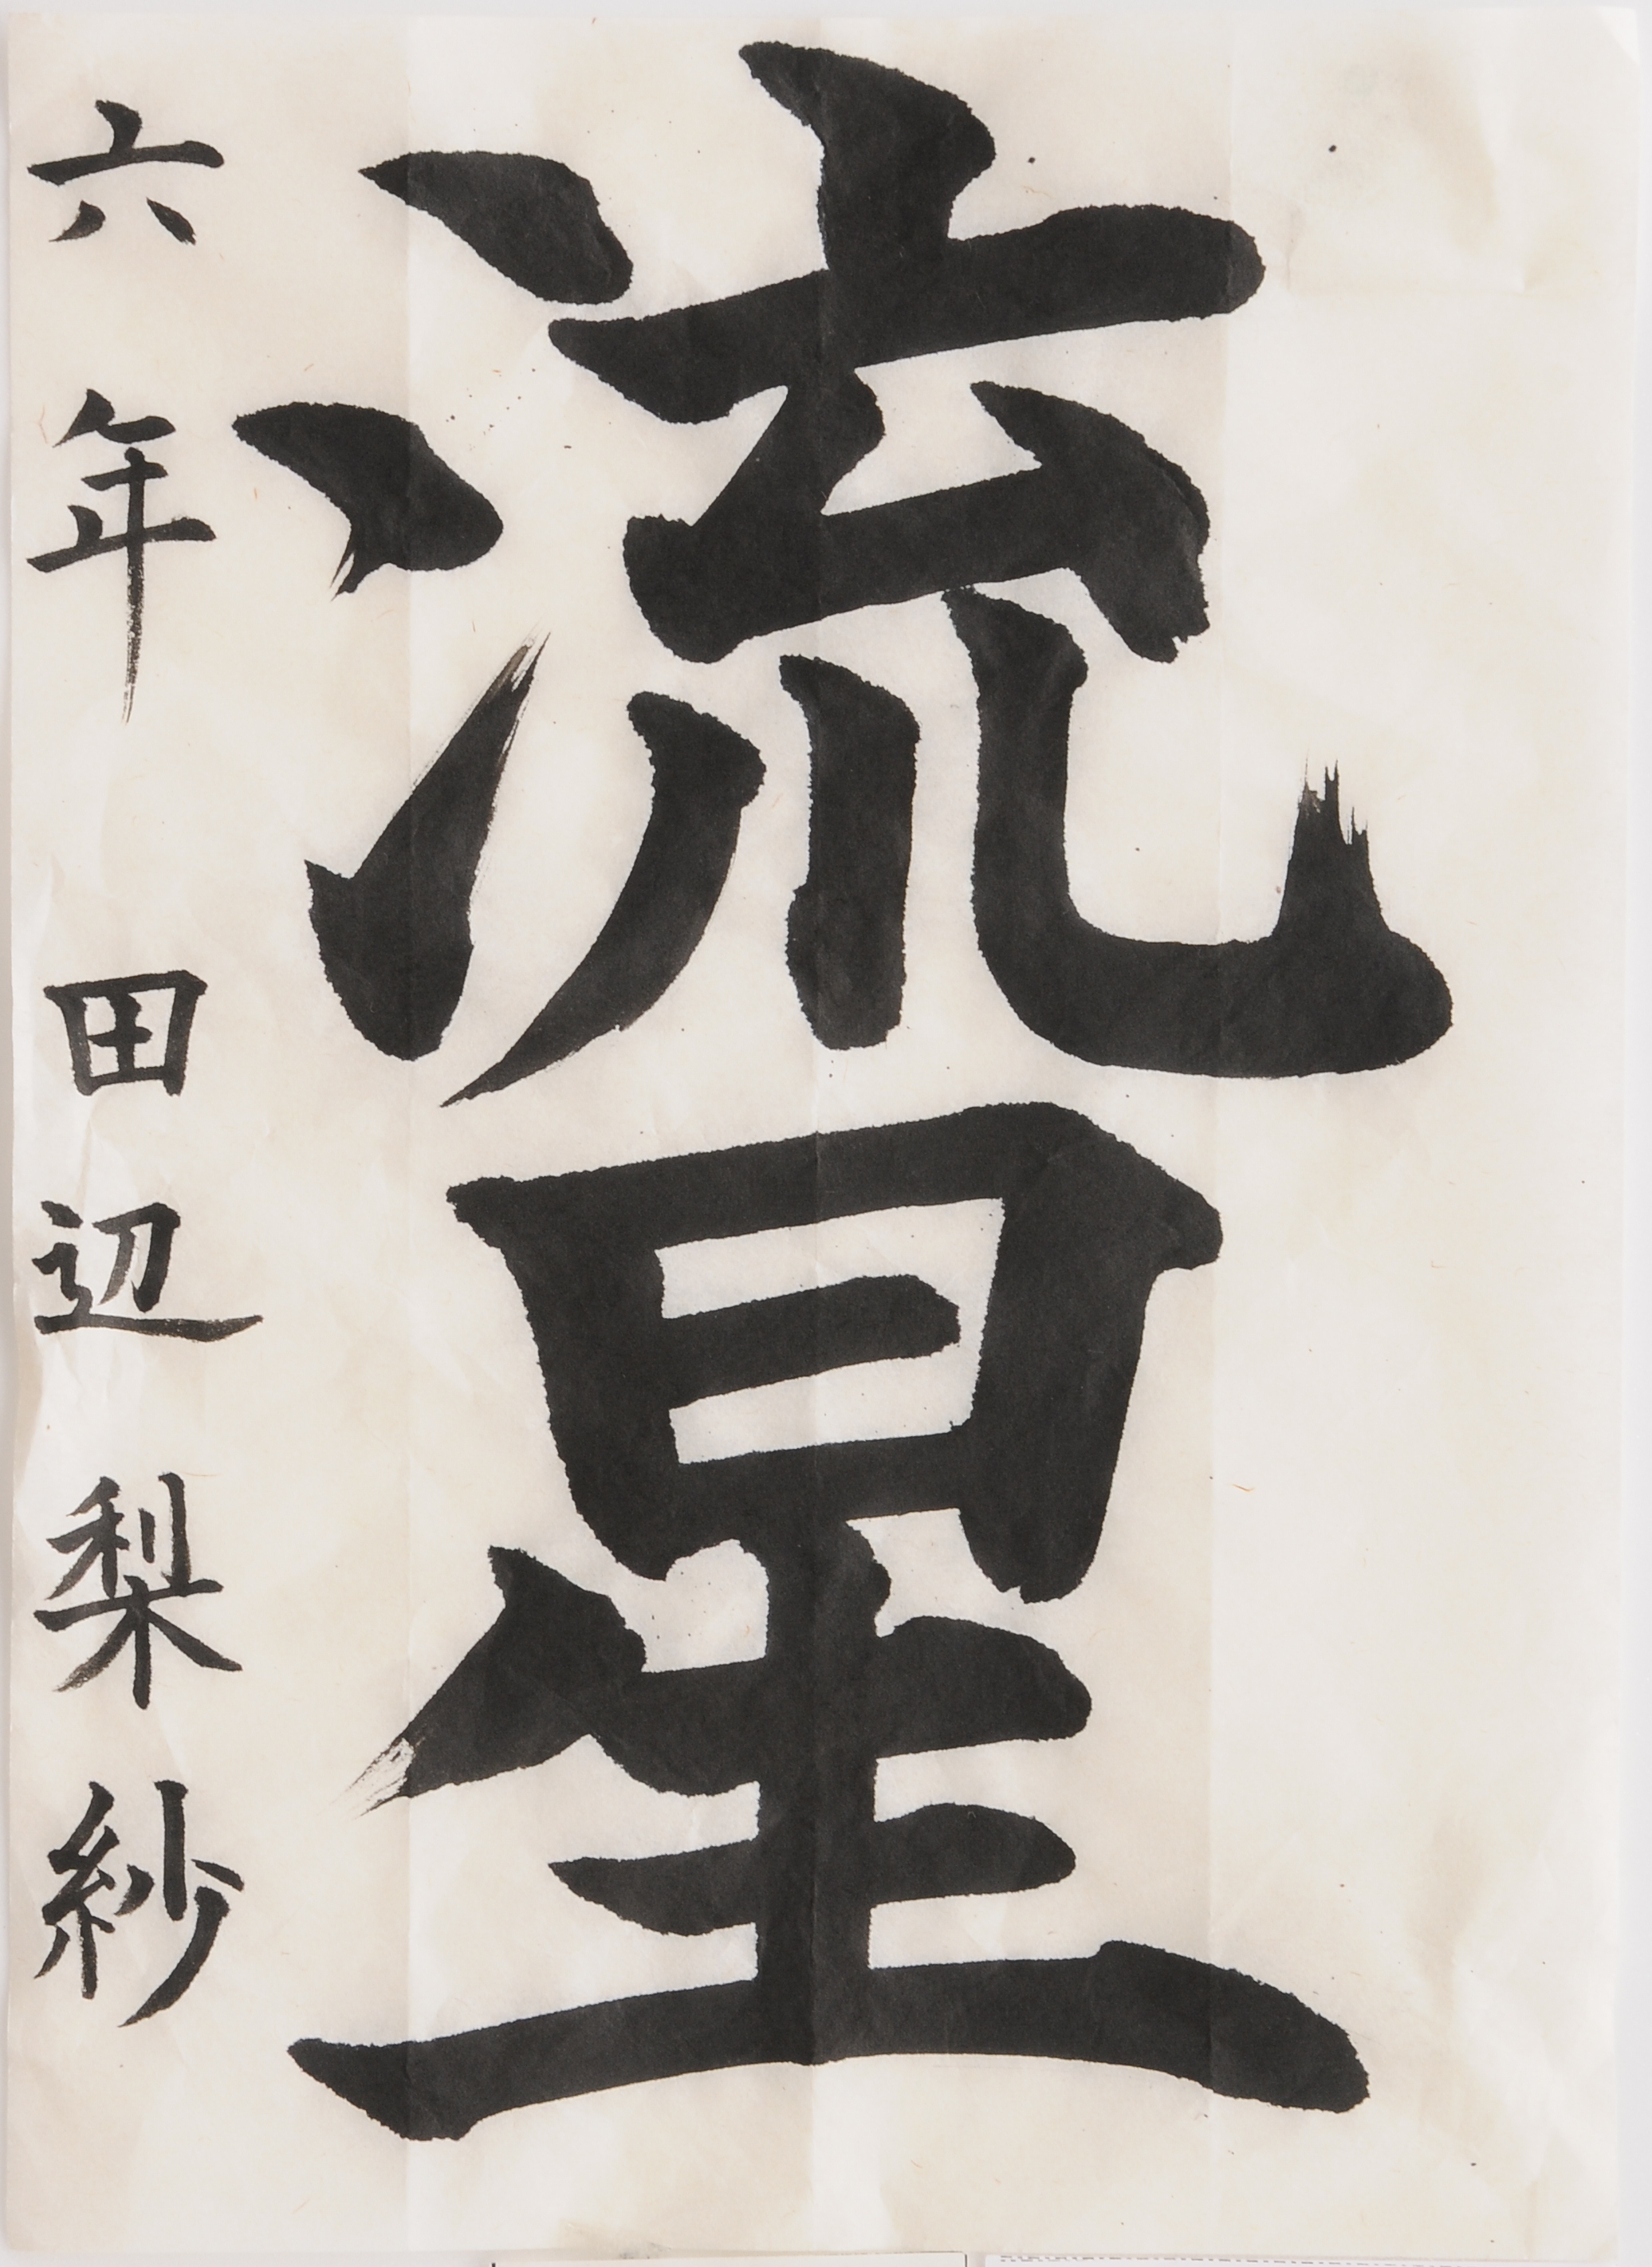 流星
六年 田辺梨紗